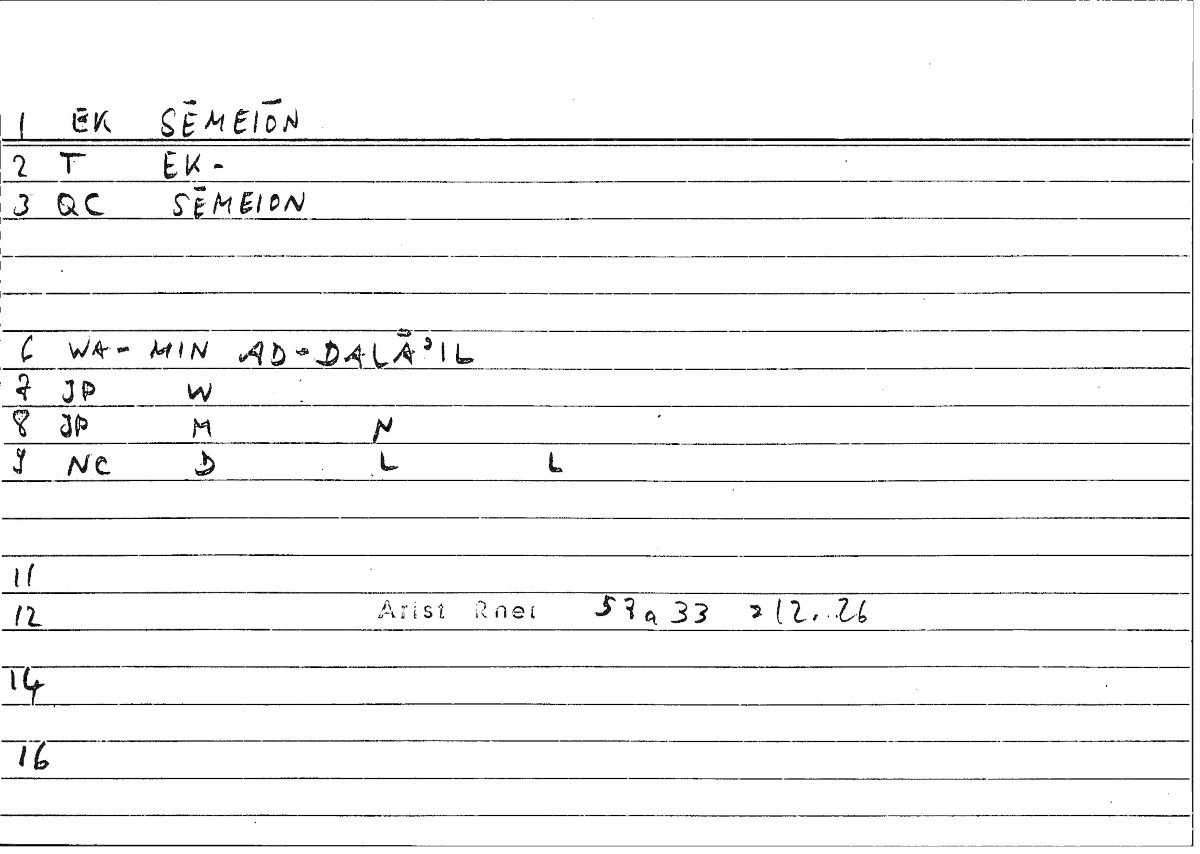 1 EK SĒMEIŌN
2 T EK-
3 QC SĒMEION
6 WA- MIN AD-DALĀʾIL
7 JP W
8 JP M N
9 NC D L L
11
12 Arist Rhet 57a 33 = 12..26
14
16